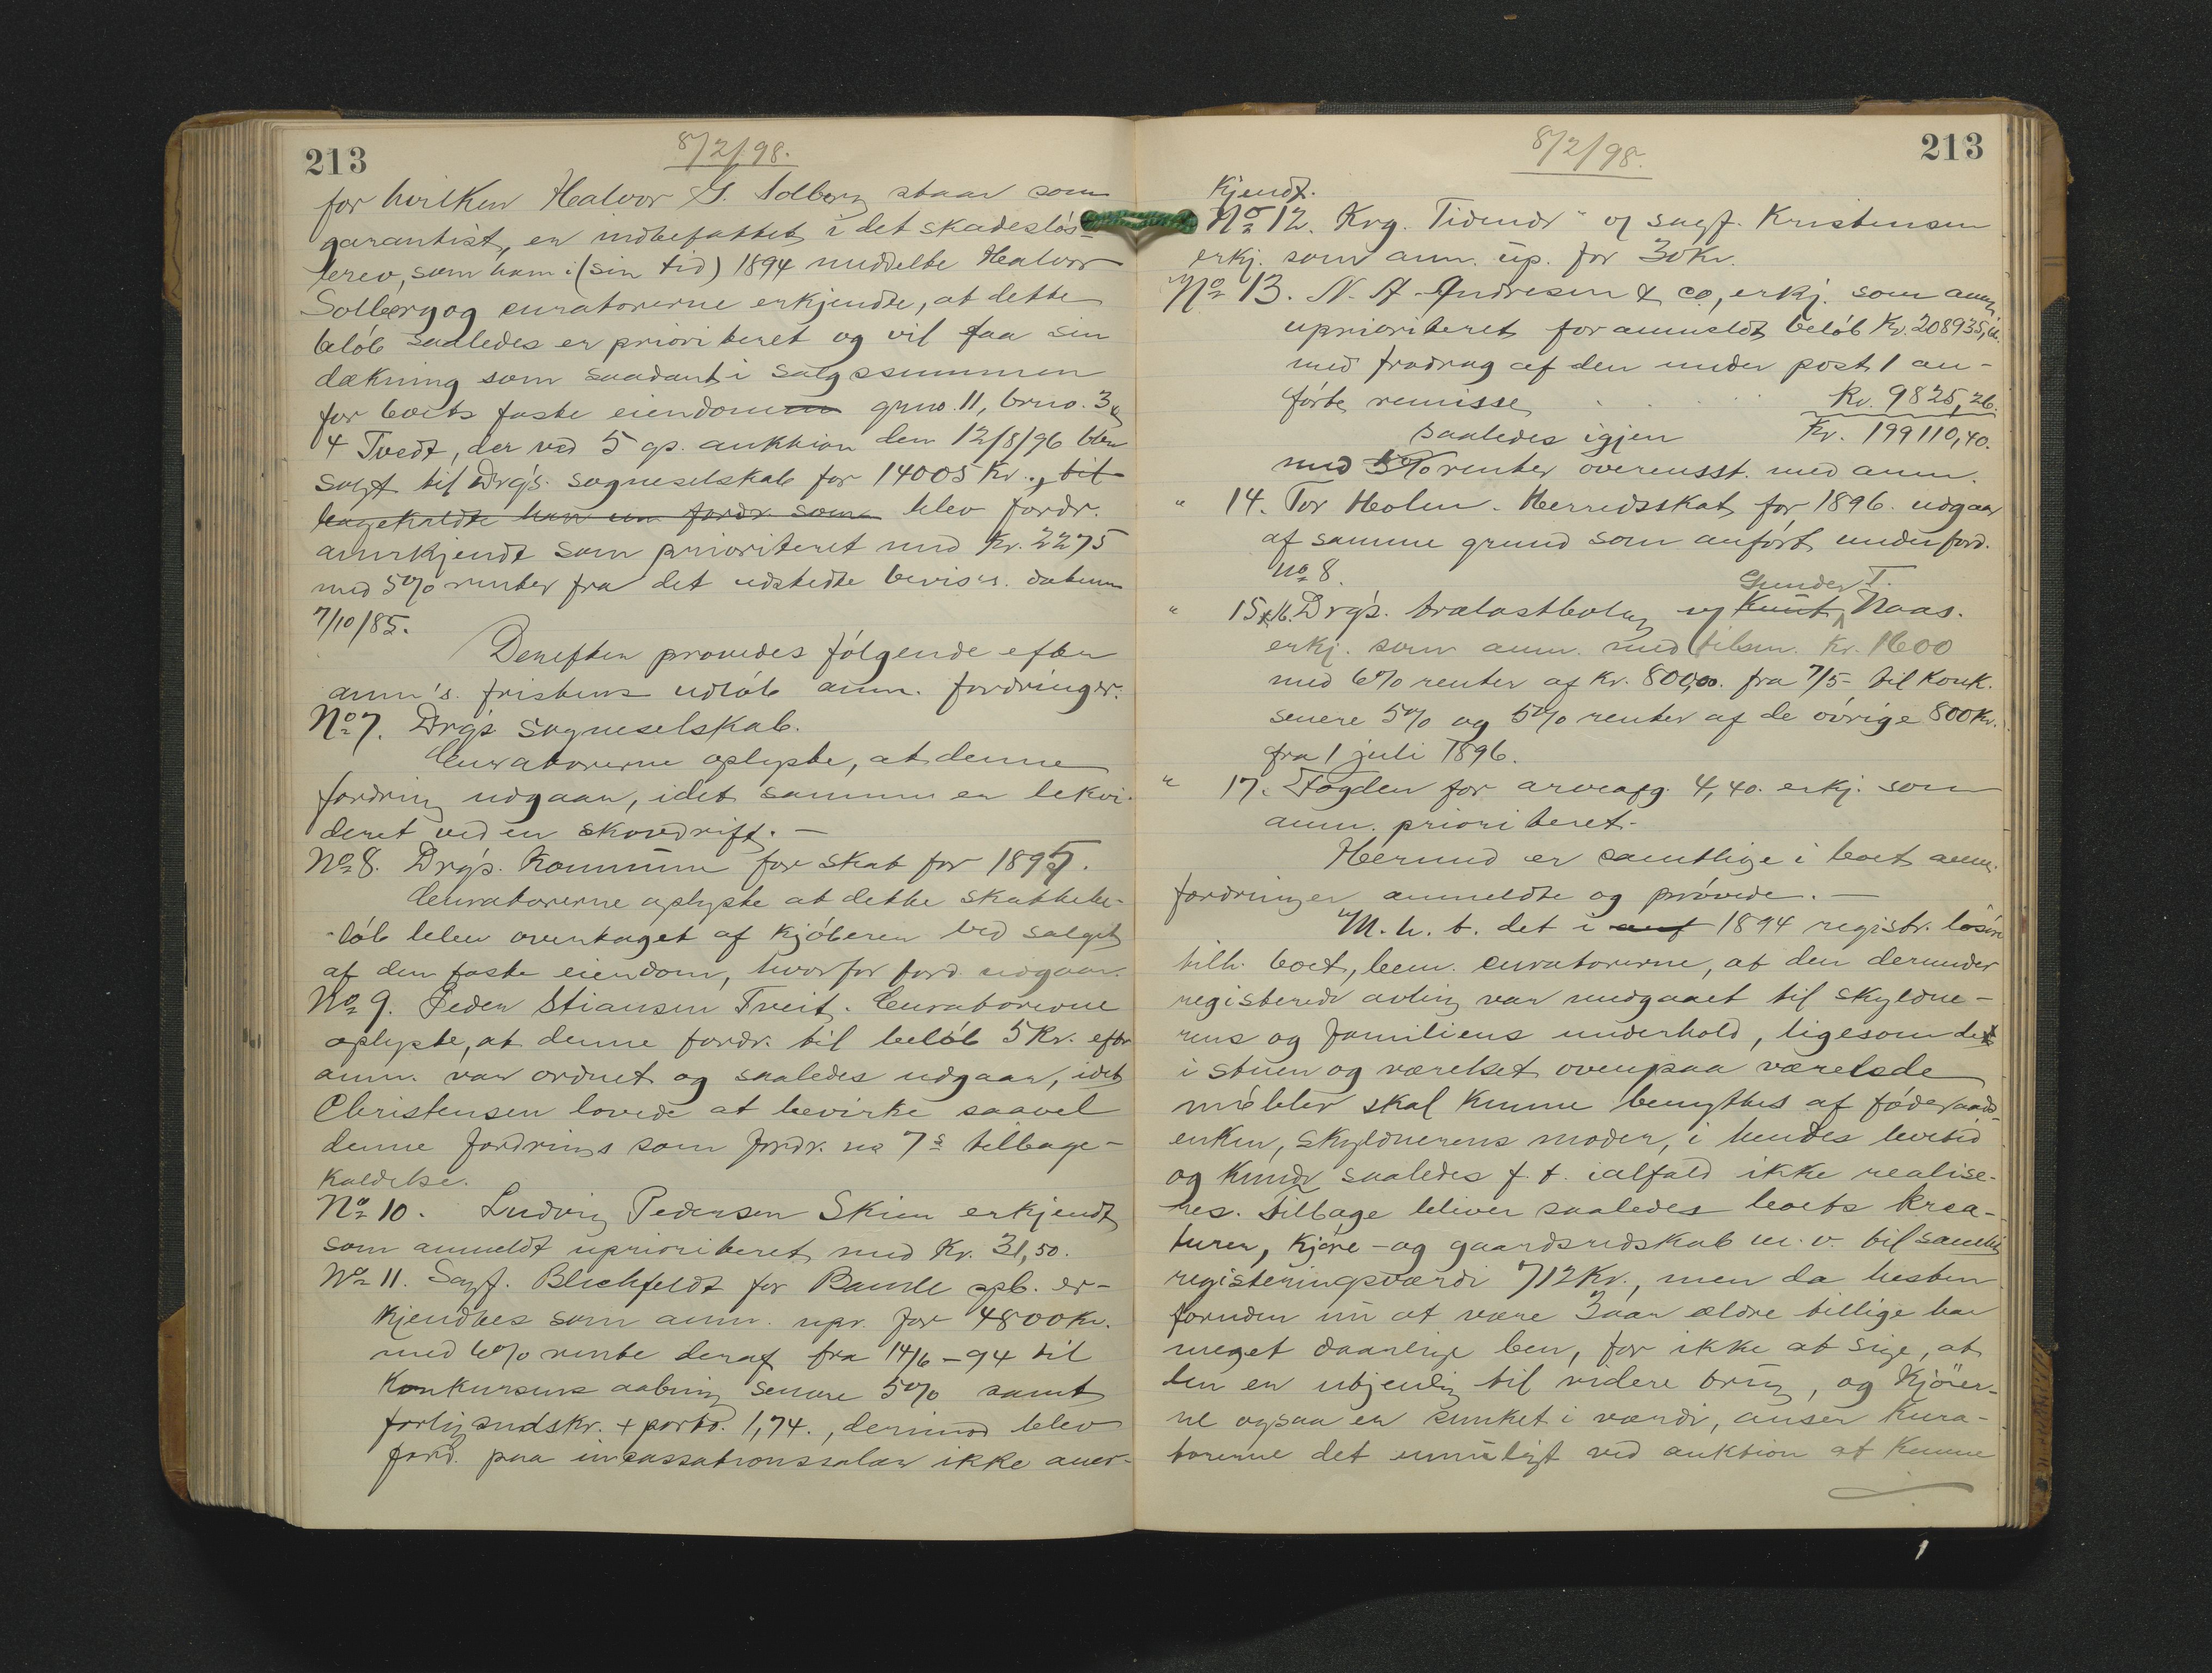 213
8/2/98.
for hvilken Halvor G. Solberg staar som
garantist, er indbefattet i det skadesløs-
brev, som ham i (sin tid) 1894 meddelte Halvor
Solberg og curatorerne erkjendte, at dette
beløb saaledes er prioriteret og vil faa sin
dækning som saadant i salgssummen
for boets faste eiendom grno. 11, brno. 3 &
4 Tvedt, der ved 5 gs. auktion den 12/8/96 blev
solgt til Drg's. sogneselskab for 14005 Kr., til
bagekaldte han en fordr. som blev fordr.
annerkjendt som prioriteret med Kr. 2275
med 5% renter fra det udstedte bevis's. datum
7/10/85.
Derefter prøvedes følgende efter
anm's. fristens udløb anm. fordringer.
No 7. Drg's sogneselskab.
Curatorerne oplyste, at denne
fordring udgaar, idet samme er likvi-
deret ved en skovdrift. —
No 8. Drg's. Kommune for skat for 1895.
Curatorerne oplyste at dette skattebe-
løb blev overtaget af kjøberen ved salget
af den faste eiendom, hvorfor ford. udgaar.
No 9. Peder Stiansen Tveit. Curatorerne
oplyste, at denne fordr. til beløb 5 Kr. efter
anm. var ordnet og saaledes udgaar, idet
Christensen lovede at bevirke saavel
denne fordrings som fordr. no 7s tilbage-
kaldelse.
No 10. Ludvig Pedersen Skien erkjendt
som anmeldt uprioriteret med Kr. 31,50.
No 11. Sagf. Blichfeldt for Bamle spb. er-
kjendtes som anm. upr. for 4800 Kr.
med 6% rente deraf fra 14/6 - 94 til
Konkursens aabning senere 5% samt
forligsudskr. + porto. 1,74., derimod blev
ford. paa incassationssalær ikke aner-
213
8/2/98.
kjendt.
No 12. Krg. Tidende" og sagf. Kristensen
erkj. som anm. up. for 30 Kr.
No 13. N. A. Andresen & Co, erkj. som anm.
uprioriteret for anmeldt beløb Kr. 208935,66.
med fradrag af den under post 1 an-
førte remisse . . . . Kr. 9825,26.
saaledes igjen Kr. 199110,40.
med 5% renter overensst. med anm.
" 14. Tor Holen. Herredsskat for 1896. udgaar
af samme grund som anført under ford.
no 8.
Gunder T.
" 15 & 16. Drg's. bralastbolag og Knut Naas.
erkj. som anm. med tilsm. Kr. 1600
med 6% renter af Kr. 800,00. fra 7/5 - til Konk.
senere 5% og 5% renter af de øvrige 800 Kr.
fra 1 juli 1896.
" 17. Fogden for arveafg. 4,40. erkj. som
anm. prioriteret.
Hermed er samtlige i boet anm.
fordringer anmeldte og prøvede. —
M. h. t. det i 1894 registr. løsøre
tilh. boet, bem. curatorerne, at den derunder
registerede avling var medgaaet til skyldne-
rens og familiens underhold, ligesom det
i stuen og værelset ovenpaa værelsde
møbler skal kunne benyttes af føderaads-
enken, skyldnerens moder, i hendes levetid
og kunde saaledes f. t. ialfald ikke realise-
res. Tilbage bliver saaledes boets krea-
turer, kjøre- og gaardsredskab m. v. til samlet
registeringsværdi 712 Kr., men da hesten
foruden nu at være 3 aar ældre tillige har
meget daarlige ben, for ikke at sige, at
den er utjenlig til videre brug, og kjøer-
ne ogsaa er sunket i værdi, anser kura-
torerne det umuligt ved auktion at kunne